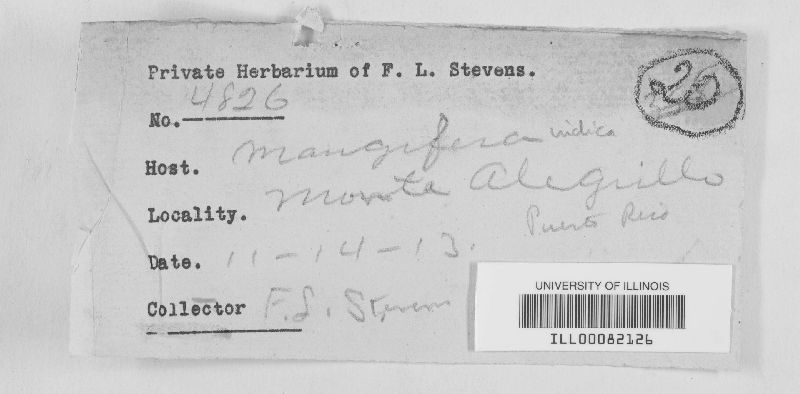 Private Herbarium of F. L. Stevens.
No. 4826
Host. Mangifera indica
Locality. Monte Alegrillo
Puerto Rico
Date. 11-14-13.
Collector F.L. Stevens
UNIVERSITY OF ILLINOIS
ILL00082126